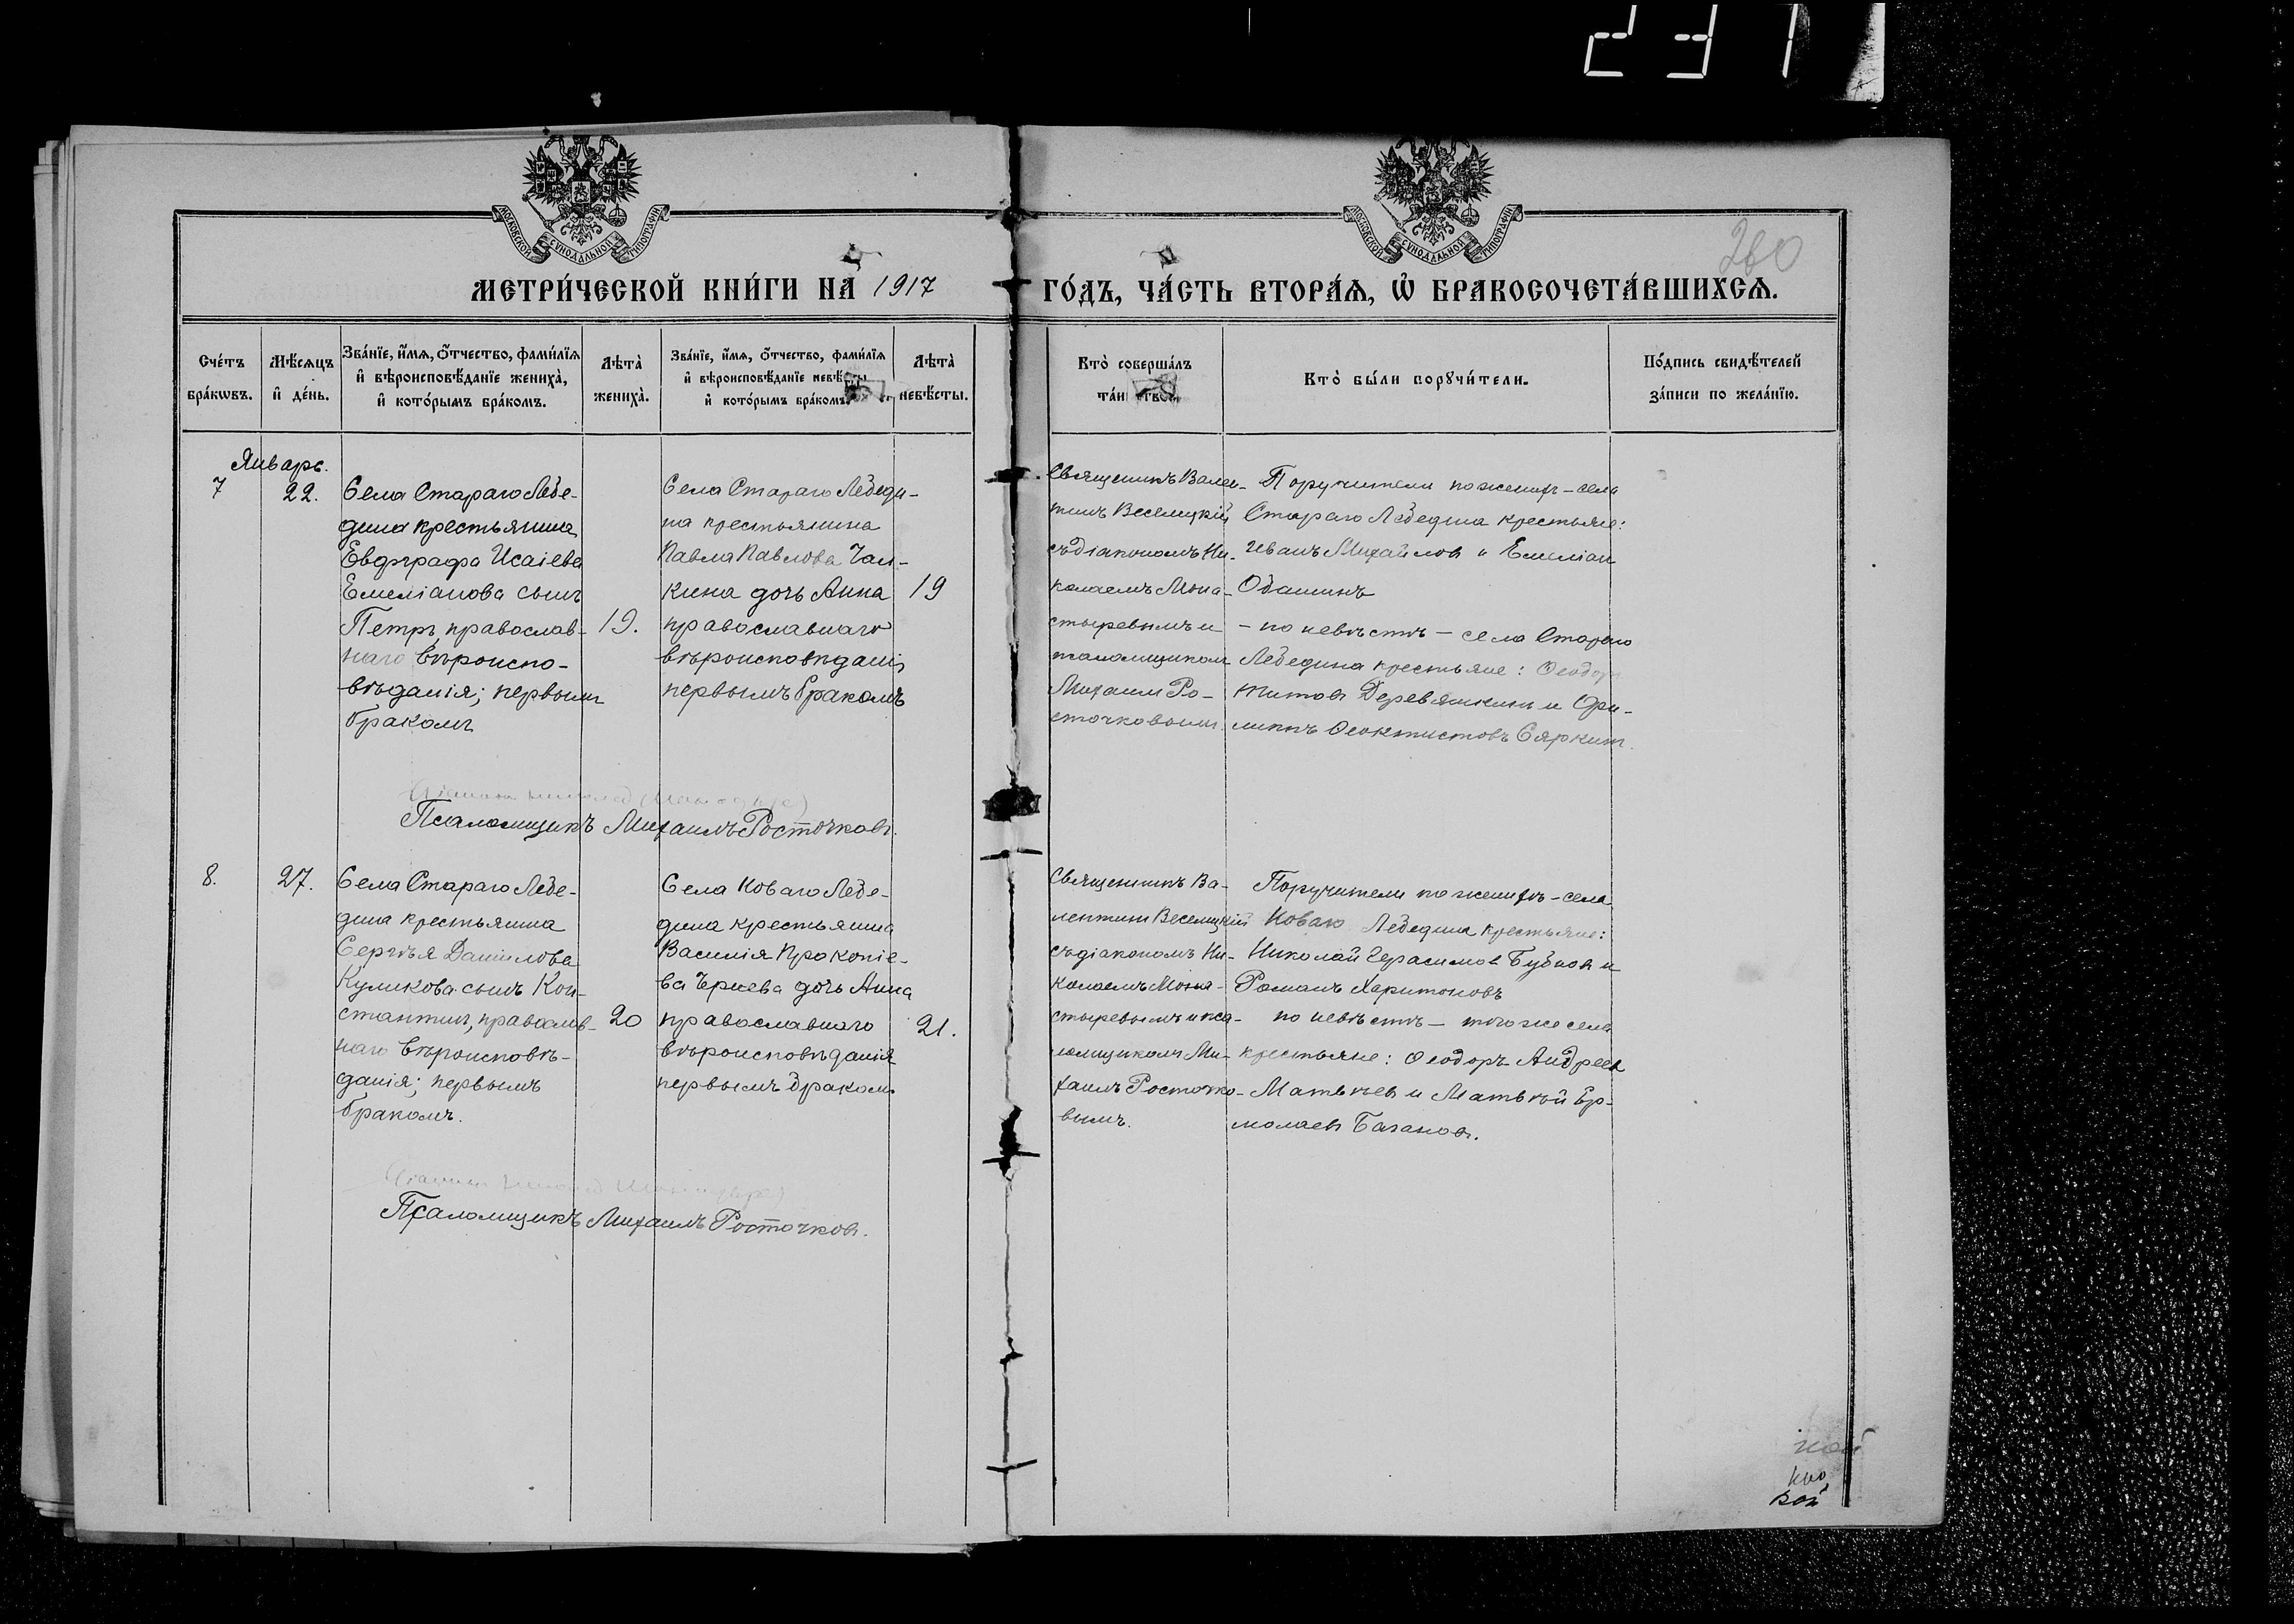 2371
МОСКОВСКОЙ СѴНОДАЛЬНОЙ ТИПОГРАФІИ
МОСКОВСКОЙ СѴНОДАЛЬНОЙ ТИПОГРАФІИ
260
МЕТРИ́ЧЕСКОЙ КНИ́ГИ НА 1917
ГО́ДЪ, ЧА́СТЬ ВТОРА́Ѧ, Ѡ҆ БРАКОСОЧЕТА́ВШИХСѦ.
Сче́тъ бра́кѡвъ.
Мѣ́сяцъ и҆ де́нь.
Зва́нїе, и҆́мѧ, ѻ҆́тчество, фами́лїѧ
и҆ вѣроисповѣ́данїе жениха̀,
и҆ кото́рымъ бра́комъ.
Лѣта̀ жениха̀.
Зва́нїе, и҆́мѧ, ѻ҆́тчество, фами́лїѧ
и҆ вѣроисповѣ́данїе невѣ́сты
и҆ кото́рымъ бра́комъ.
Лѣта̀ невѣ́сты.
Кто̀ соверша́лъ
та́инство.
Кто̀ бы́ли порꙋчи́тели.
По́дпись свидѣ́телей
за́писи по жела́нїю.
Январь.
7
22.
Села Стараго Лебе-
дина крестьянина
Евдграфа Исаіева
Емеліанова сынъ
Петръ, православ-
наго вѣроиспо-
вѣданія; первымъ
бракомъ
19.
Села Стараго Лебеди-
на крестьянина
Павла Павлова Чал-
кина дочь Анна
православнаго
вѣроисповѣданія
первымъ бракомъ
19
Священникъ Вален-
тинъ Веселицкій
съ діакономъ Ни-
колаемъ Мона-
стыревымъ и
псаломщикомъ
Михаилъ Ро-
сточковымъ.
Поручители по женихѣ – села
Стараго Лебедина крестьяне:
Иванъ Михайловъ и Емеліан
Одашинъ
– по невѣстѣ – села Стараго
Лебедина крестьяне: Ѳеодоръ
Титовъ Деревяшкинъ и Фи-
липпъ Ѳеоктистовъ Сяркинъ.
Псаломщикъ Михаилъ Росточковъ.
8.
27.
Села Стараго Лебе-
дина крестьянина
Сергѣя Данилова
Куликова сынъ Кон-
стантинъ, православ-
наго вѣроисповѣ-
данія; первымъ
бракомъ.
20
Села Новаго Лебе-
дина крестьянина
Василія Прокопіе-
ва Чернева дочь Анна
православнаго
вѣроисповѣданія
первымъ бракомъ
21.
Священникъ Ва-
лентинъ Веселицкій
съ діакономъ Ни-
колаемъ Мона-
стыревымъ и пса-
ломщикомъ Ми-
хаилъ Росточко-
вымъ.
Поручители по женихѣ – села
Новаго Лебедина крестьяне:
Николай Герасимов Бубновъ и
Романъ Харитоновъ
по невѣстѣ – того же села
крестьяне: Ѳеодоръ Андреевъ
Матвѣевъ и Матвѣй Ер-
молаевъ Багановъ.
Псаломщикъ Михаилъ Росточковъ.